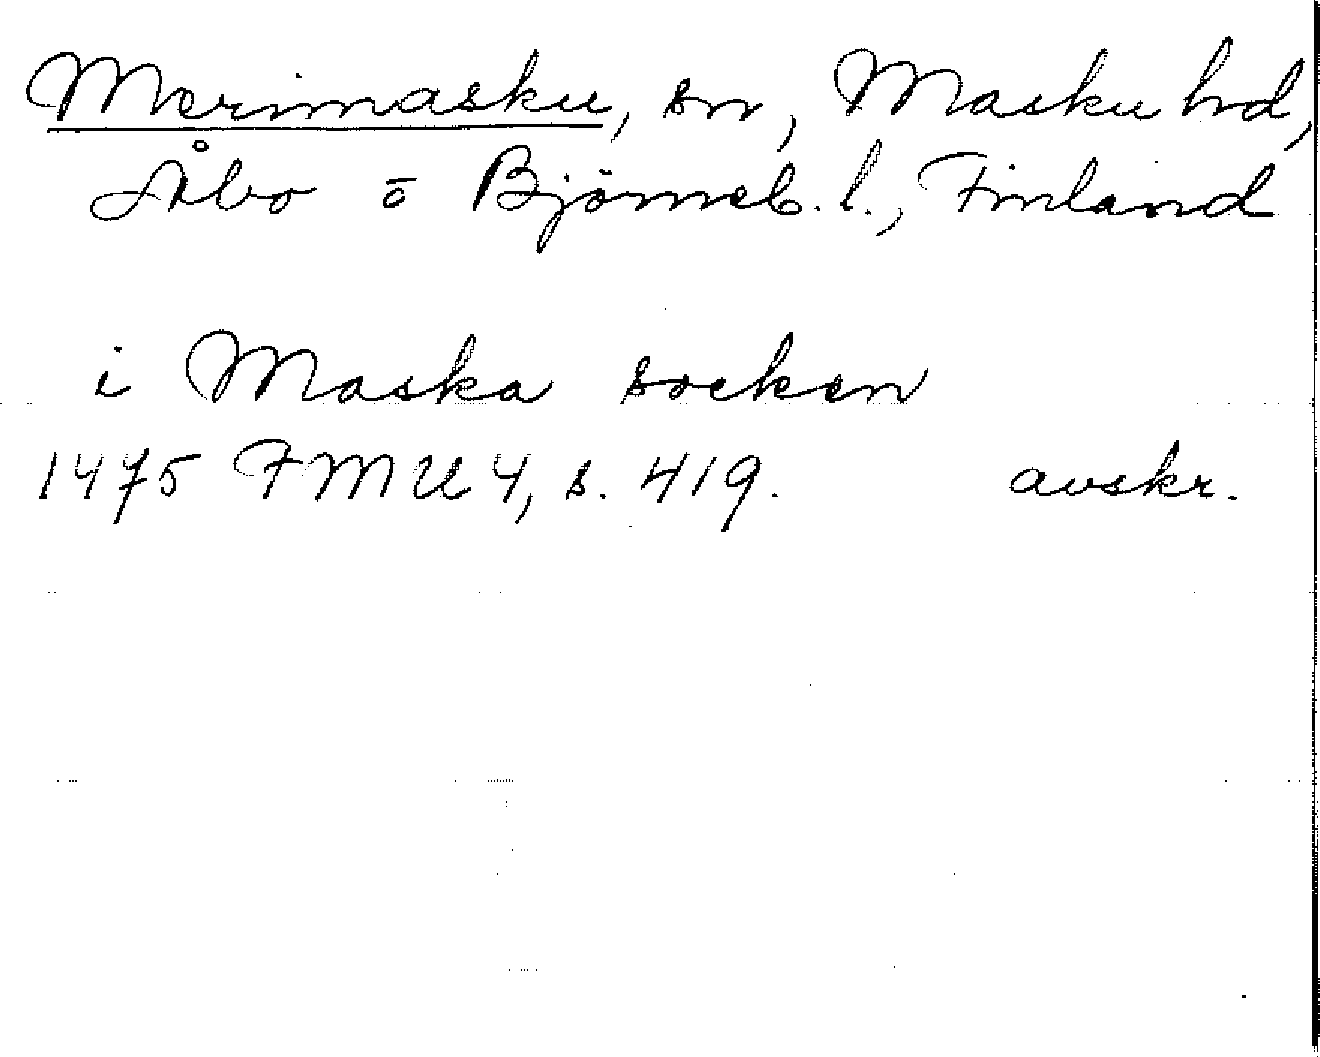 Merimasku, sn, Masku hd,
Åbo o Björneb. l., Finland
i Maska socken
1475 FMU 4, s. 419. avskr.